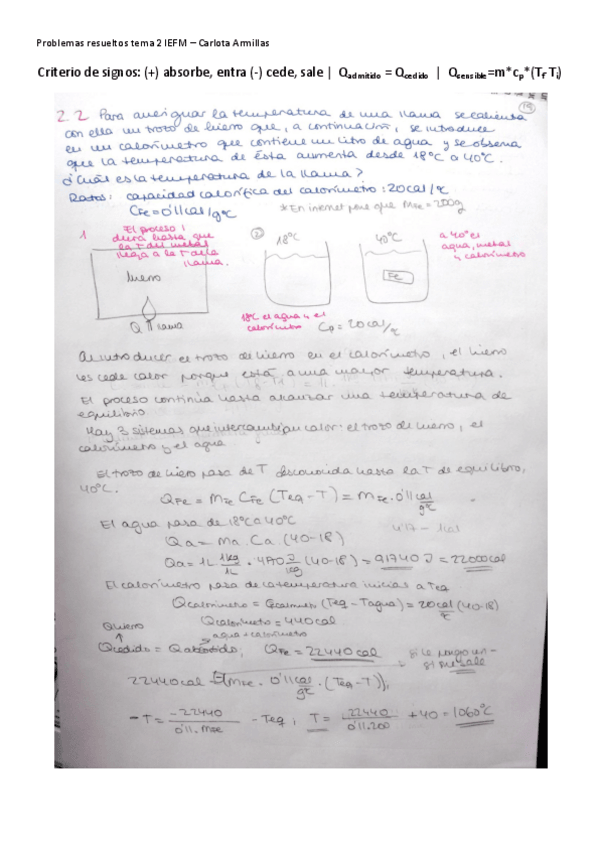 Problemas resueltos tema 2 IEFM – Carlota Armillas
Criterio de signos: (+) absorbe, entra (-) cede, sale | Qadmitido = Qcedido | Qsensible=m*cp*(Tf-Ti)
2.2 Para averiguar la temperatura de una llama se calienta
con ella un trozo de hierro que, a continuación, se introduce
en un calorímetro que contiene un litro de agua y se observa
que la temperatura de ésta aumenta desde 18ºC a 40ºC.
¿Cuál es la temperatura de la llama?
Datos: capacidad calorífica del calorímetro: 20cal/ºC
CFe=0'11cal/gºC *En internet pone que MFe=200g
1 El proceso
durá hasta que
la T del metal
llega a la T de la
llama.
hierro
Q llama
2
18ºC
40ºC
Fe
a 40º el
agua, metal
y calorímetro
18ºC el agua y el
calorímetro
Cp = 20cal/ºC
Al introducir el trozo de hierro en el calorímetro, el hierro
les cede calor porque está a una mayor temperatura.
El proceso continúa hasta alcanzar una temperatura de
equilibrio
Hay 3 sistemas que intercambian calor: el trozo de hierro, el
calorímetro y el agua
El trozo de hierro pasa de T desconocida hasta la T de equilibrio,
40ºC.
QFe = MFe CFe (Teq-T) = MFe·0'11cal/gºC
El agua pasa de 18ºC a 40ºC
Qa = Ma·Ca·(40-18)
Qa = 1L·1kg/1L·4170 J/kg (40-18) = 91740J = 22000cal
El calorímetro pasa de la temperatura inicial a Teq
Qcalorímetro = Ccalorím (Teq-Tagua) = 20cal/ºC (40-18)
Qcalorímetro = 440cal
agua+calorímetro
Qcedido = Qabsorbido; QFe = 22440cal
22440cal = -[MFe·0'11cal/gºC·(Teq-T)];
-T = -22440/0'11·MFe - Teq; T = 22440/0'11·200 + 40 = 1060ºC